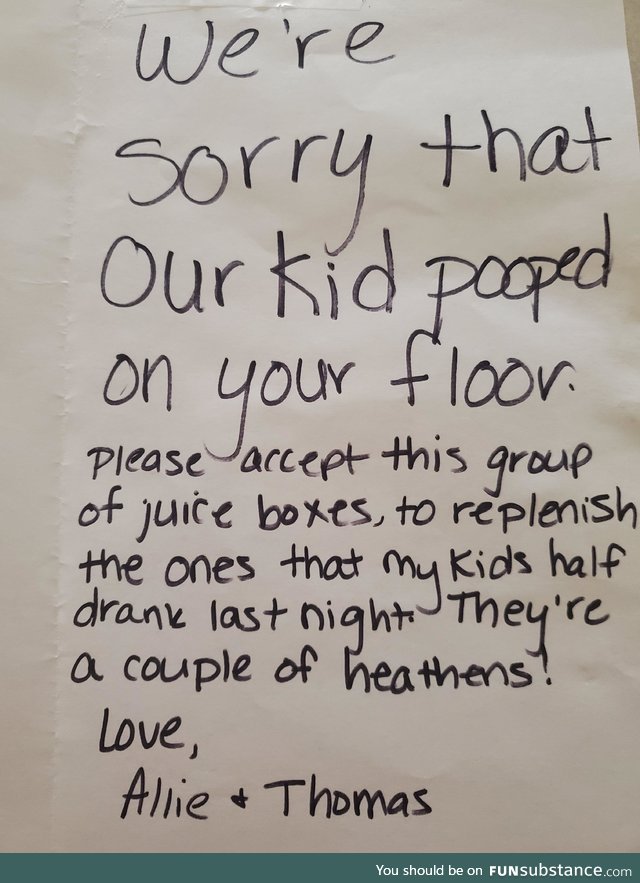 We're
sorry that
Our kid pooped
on your floor.
Please accept this group
of juice boxes, to replenish
the ones that my kids half
drank last night. They're
a couple of heathens!
Love,
Allie + Thomas
You should be on FUNsubstance.com